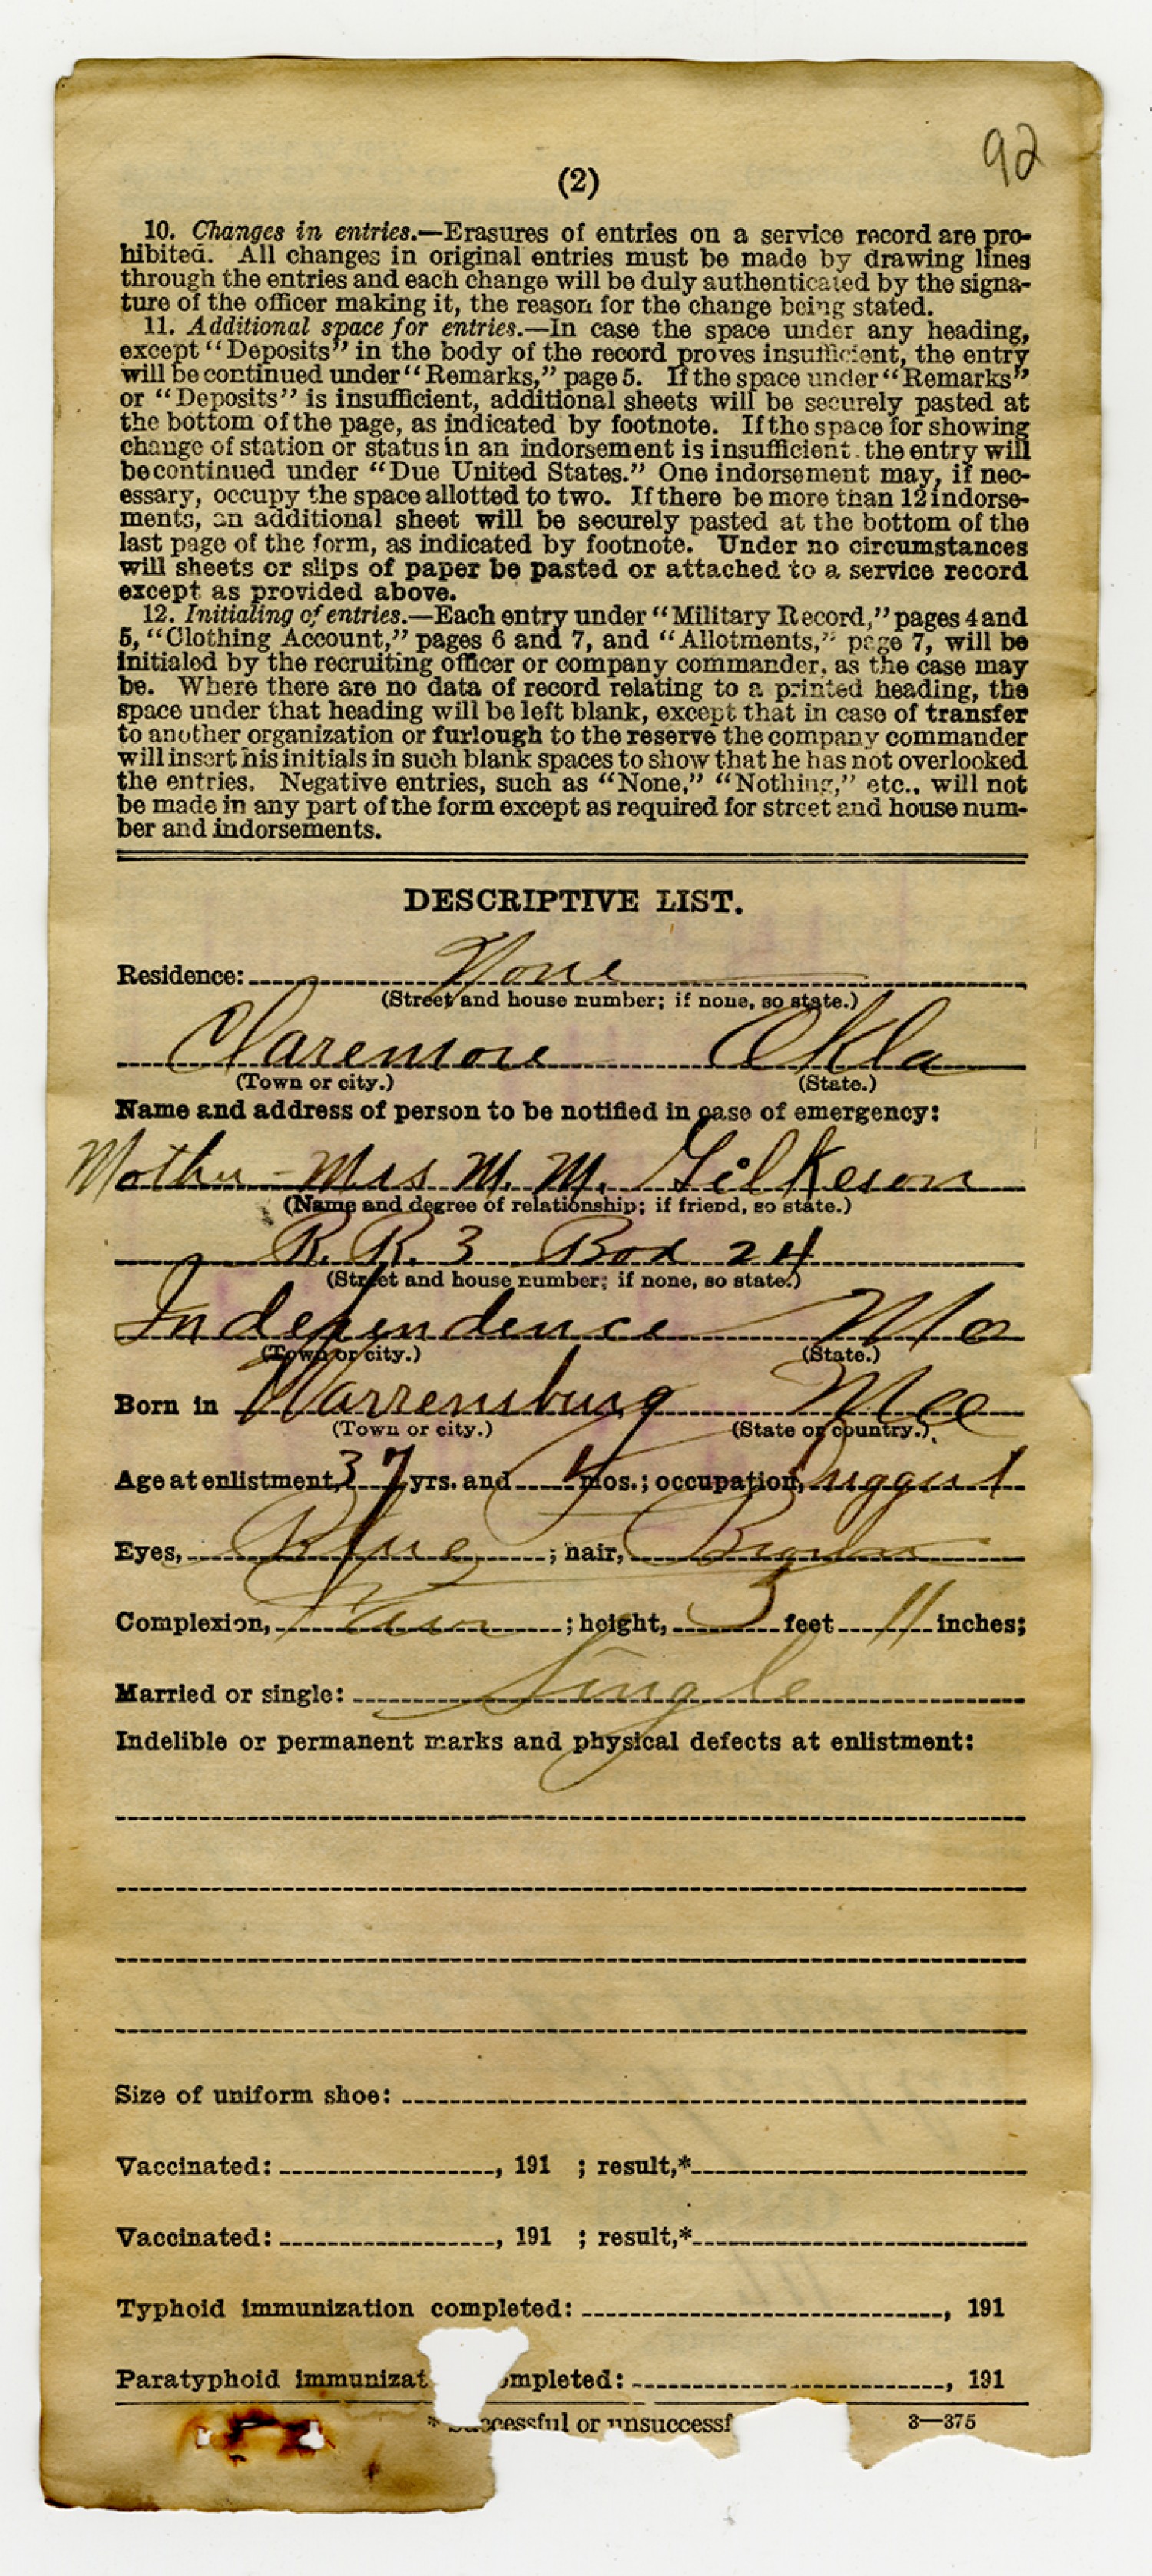 92
(2)
10. Changes in entries.—Erasures of entries on a service record are pro-
hibited. All changes in original entries must be made by drawing lines
through the entries and each change will be duly authenticated by the signa-
ture of the officer making it, the reason for the change being stated.
11. Additional space for entries.—In case the space under any heading,
except "Deposits" in the body of the record proves insufficient, the entry
will be continued under "Remarks," page 5. If the space under "Remarks"
or "Deposits" is insufficient, additional sheets will be securely pasted at
the bottom of the page, as indicated by footnote. If the space for showing
change of station or status in an indorsement is insufficient the entry will
be continued under "Due United States." One indorsement may, if nec-
essary, occupy the space allotted to two. If there be more than 12 indorse-
ments, an additional sheet will be securely pasted at the bottom of the
last page of the form, as indicated by footnote. Under no circumstances
will sheets or slips of paper be pasted or attached to a service record
except as provided above.
12. Initialing of entries.—Each entry under "Military Record," pages 4 and
5, "Clothing Account," pages 6 and 7, and "Allotments," page 7, will be
initialed by the recruiting officer or company commander, as the case may
be. Where there are no data of record relating to a printed heading, the
space under that heading will be left blank, except that in case of transfer
to another organization or furlough to the reserve the company commander
will insert his initials in such blank spaces to show that he has not overlooked
the entries. Negative entries, such as "None," "Nothing," etc., will not
be made in any part of the form except as required for street and house num-
ber and indorsements.
DESCRIPTIVE LIST.
Residence: None
(Street and house number; if none, so state.)
Claremore Okla
(Town or city.) (State.)
Name and address of person to be notified in case of emergency:
Mother - Mrs M. M. Gilkeson
(Name and degree of relationship; if friend, so state.)
R. R. 3 Box 24
(Street and house number; if none, so state.)
Independence Mo
(Town or city.) (State.)
Born in Warrensburg Mo
(Town or city.) (State or country.)
Age at enlistment, 37 yrs. and mos.; occupation, Druggist
Eyes, Blue; hair, Brown
Complexion, Fair; height, 5 feet 11 inches;
Married or single: Single
Indelible or permanent marks and physical defects at enlistment:
Size of uniform shoe:
Vaccinated: , 191 ; result,*
Vaccinated: , 191 ; result,*
Typhoid immunization completed: , 191
Paratyphoid immunizat ompleted: , 191
* Successful or unsuccessf 3—375